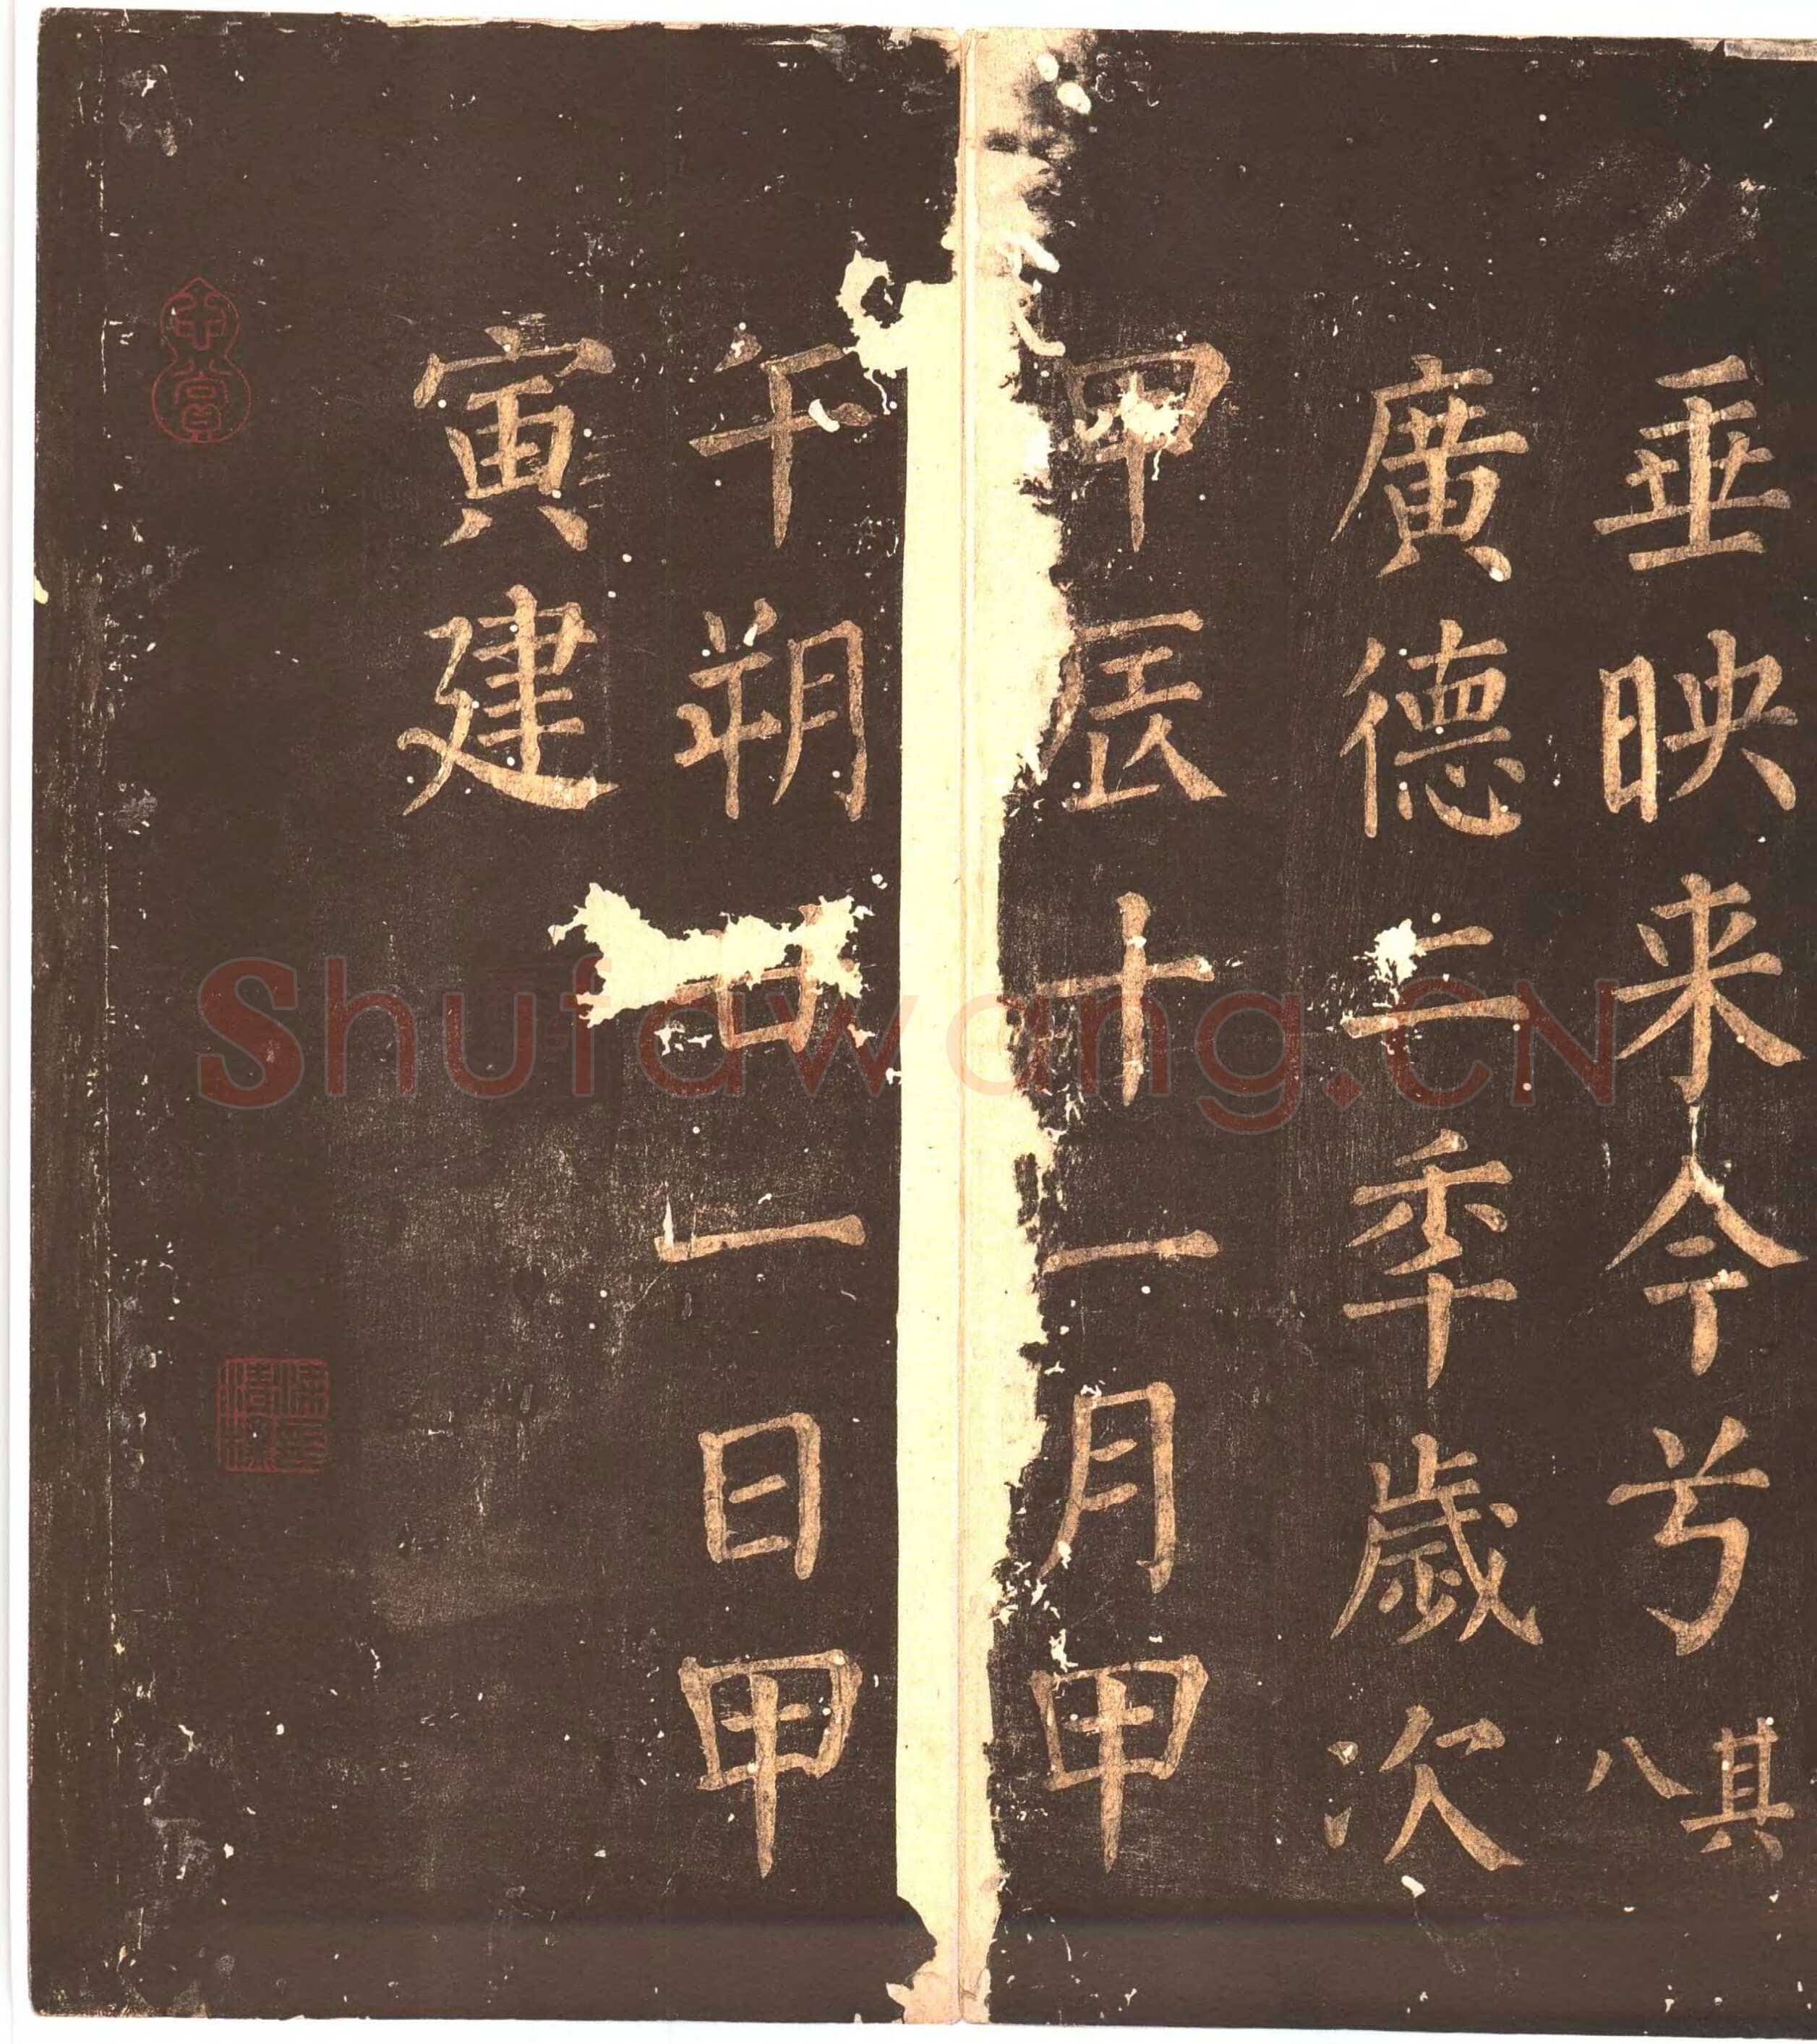 垂映来今兮其八
廣德二秊歲次
甲辰十一月甲
午朔廿一日甲
寅建
Shufawang.CN